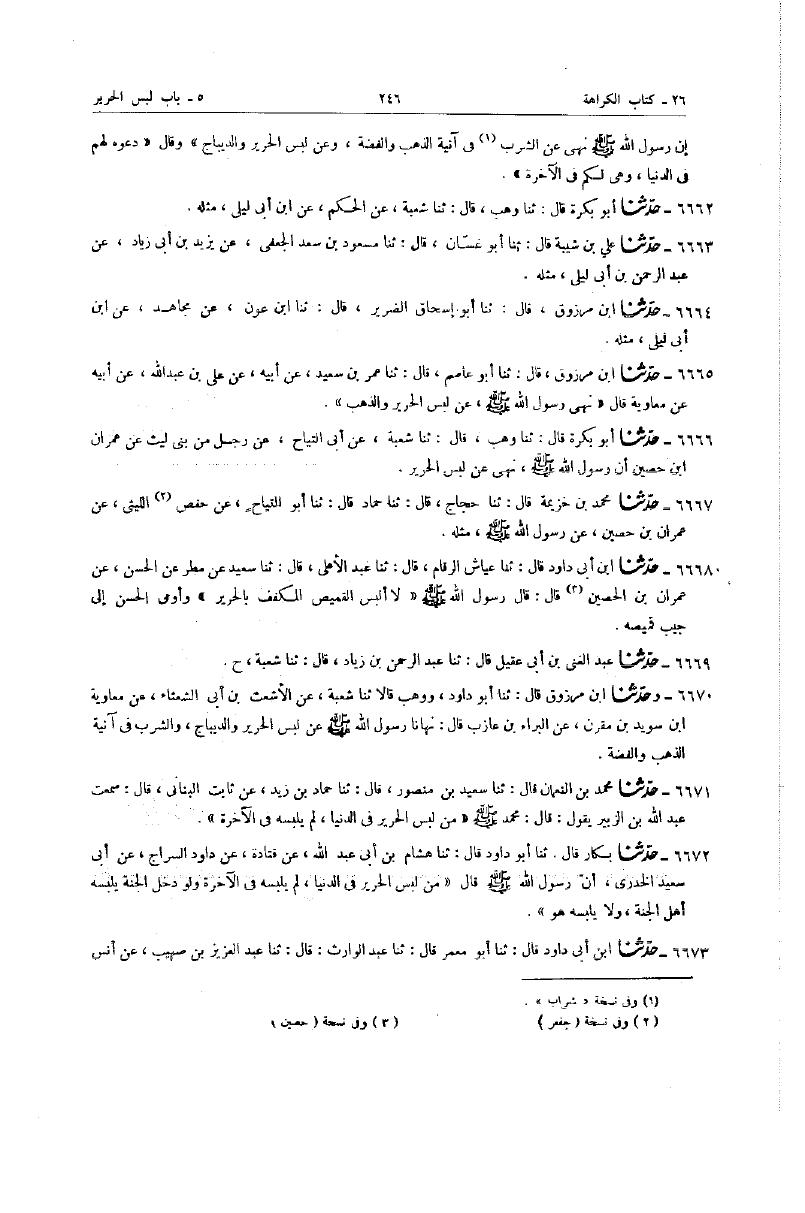 ٢٦ ـ كتاب الكراهة ٢٤٦ ٥ ـ باب لبس الحرير
إن رسول الله ﷺ نهى عن الشرب (١) فى آنية الذهب والفضة ، وعن لبس الحرير والديباج » وقال « دعوه لهم
فى الدنيا ، وهى لكم فى الآخرة » .
٦٦٦٢ ـ حدّثنا أبو بكرة قال : ثنا وهب ، قال : ثنا شعبة ، عن الحكم ، عن ابن أبى ليلى ، مثله .
٦٦٦٣ ـ حدّثنا علي بن شيبة قال : ثنا أبو غسّان ، قال : ثنا مسعود بن سعد الجعفى ، عن يزيد بن أبى زياد ، عن
عبد الرحمن بن أبى ليلى ، مثله .
٦٦٦٤ ـ حدّثنا ابن مرزوق ، قال : ثنا أبو إسحاق الضرير ، قال : ثنا ابن عون ، عن مجاهد ، عن ابن
أبى ليلى ، مثله .
٦٦٦٥ ـ حدّثنا ابن مرزوق ، قال : ثنا أبو عاصم ، قال : ثنا عمر بن سعيد ، عن أبيه ، عن على بن عبدالله ، عن أبيه
عن معاوية قال « نهى رسول الله ﷺ ، عن لبس الحرير والذهب » .
٦٦٦٦ ـ حدّثنا أبو بكرة قال : ثنا وهب ، قال : ثنا شعبة ، عن أبى التياح ، عن رجل من بنى ليث عن عمران
ابن حصين أن رسول الله ﷺ ، نهى عن لبس الحرير .
٦٦٦٧ ـ حدّثنا محمد بن خزيمة قال : ثنا حجاج ، قال : ثنا حماد قال : ثنا أبو التياح ، عن حفص (٢) الليثى ، عن
عمران بن حصين ، عن رسول الله ﷺ ، مثله .
٦٦٦٨ ـ حدّثنا ابن أبى داود قال : ثنا عياش الرقام ، قال : ثنا عبد الأعلى ، قال : ثنا سعيد عن مطر عن الحسن ، عن
عمران بن الحصين (٣) قال : قال رسول الله ﷺ « لا ألبس القميص المكفف بالحرير » وأومى الحسن إلى
جيب قميصه .
٦٦٦٩ ـ حدّثنا عبد الغنى بن أبى عقيل قال : ثنا عبد الرحمن بن زياد ، قال : ثنا شعبة ، ح .
٦٦٧٠ ـ وحدّثنا ابن مرزوق قال : ثنا أبو داود ، ووهب قالا ثنا شعبة ، عن الأشعث بن أبى الشعثاء ، عن معاوية
ابن سويد بن مقرن ، عن البراء بن عازب قال : نهانا رسول الله ﷺ عن لبس الحرير والديباج ، والشرب فى آنية
الذهب والفضة .
٦٦٧١ ـ حدّثنا محمد بن النعمان قال : ثنا سعيد بن منصور ، قال : ثنا حماد بن زيد ، عن ثابت البنانى ، قال : سمعت
عبد الله بن الزبير يقول : قال : محمد ﷺ « من لبس الحرير فى الدنيا ، لم يلبسه فى الآخرة » .
٦٦٧٢ ـ حدّثنا بكار قال . ثنا أبو داود قال : ثنا هشام بن أبى عبد الله ، عن قتادة ، عن داود السراج ، عن أبى
سعيد الخدرى ، أنّ رسول الله ﷺ قال « من لبس الحرير فى الدنيا ، لم يلبسه فى الآخرة ولو دخل الجنة يلبسه
أهل الجنة ، ولا يلبسه هو » .
٦٦٧٣ ـ حدّثنا ابن أبى داود قال : ثنا أبو معمر قال : ثنا عبد الوارث : قال : ثنا عبد العزيز بن صهيب ، عن أنس
(١) وفى نسخة « شراب » .
(٢) وفى نسخة ( جعفر ) (٣) وفى نسخة ( حصين )